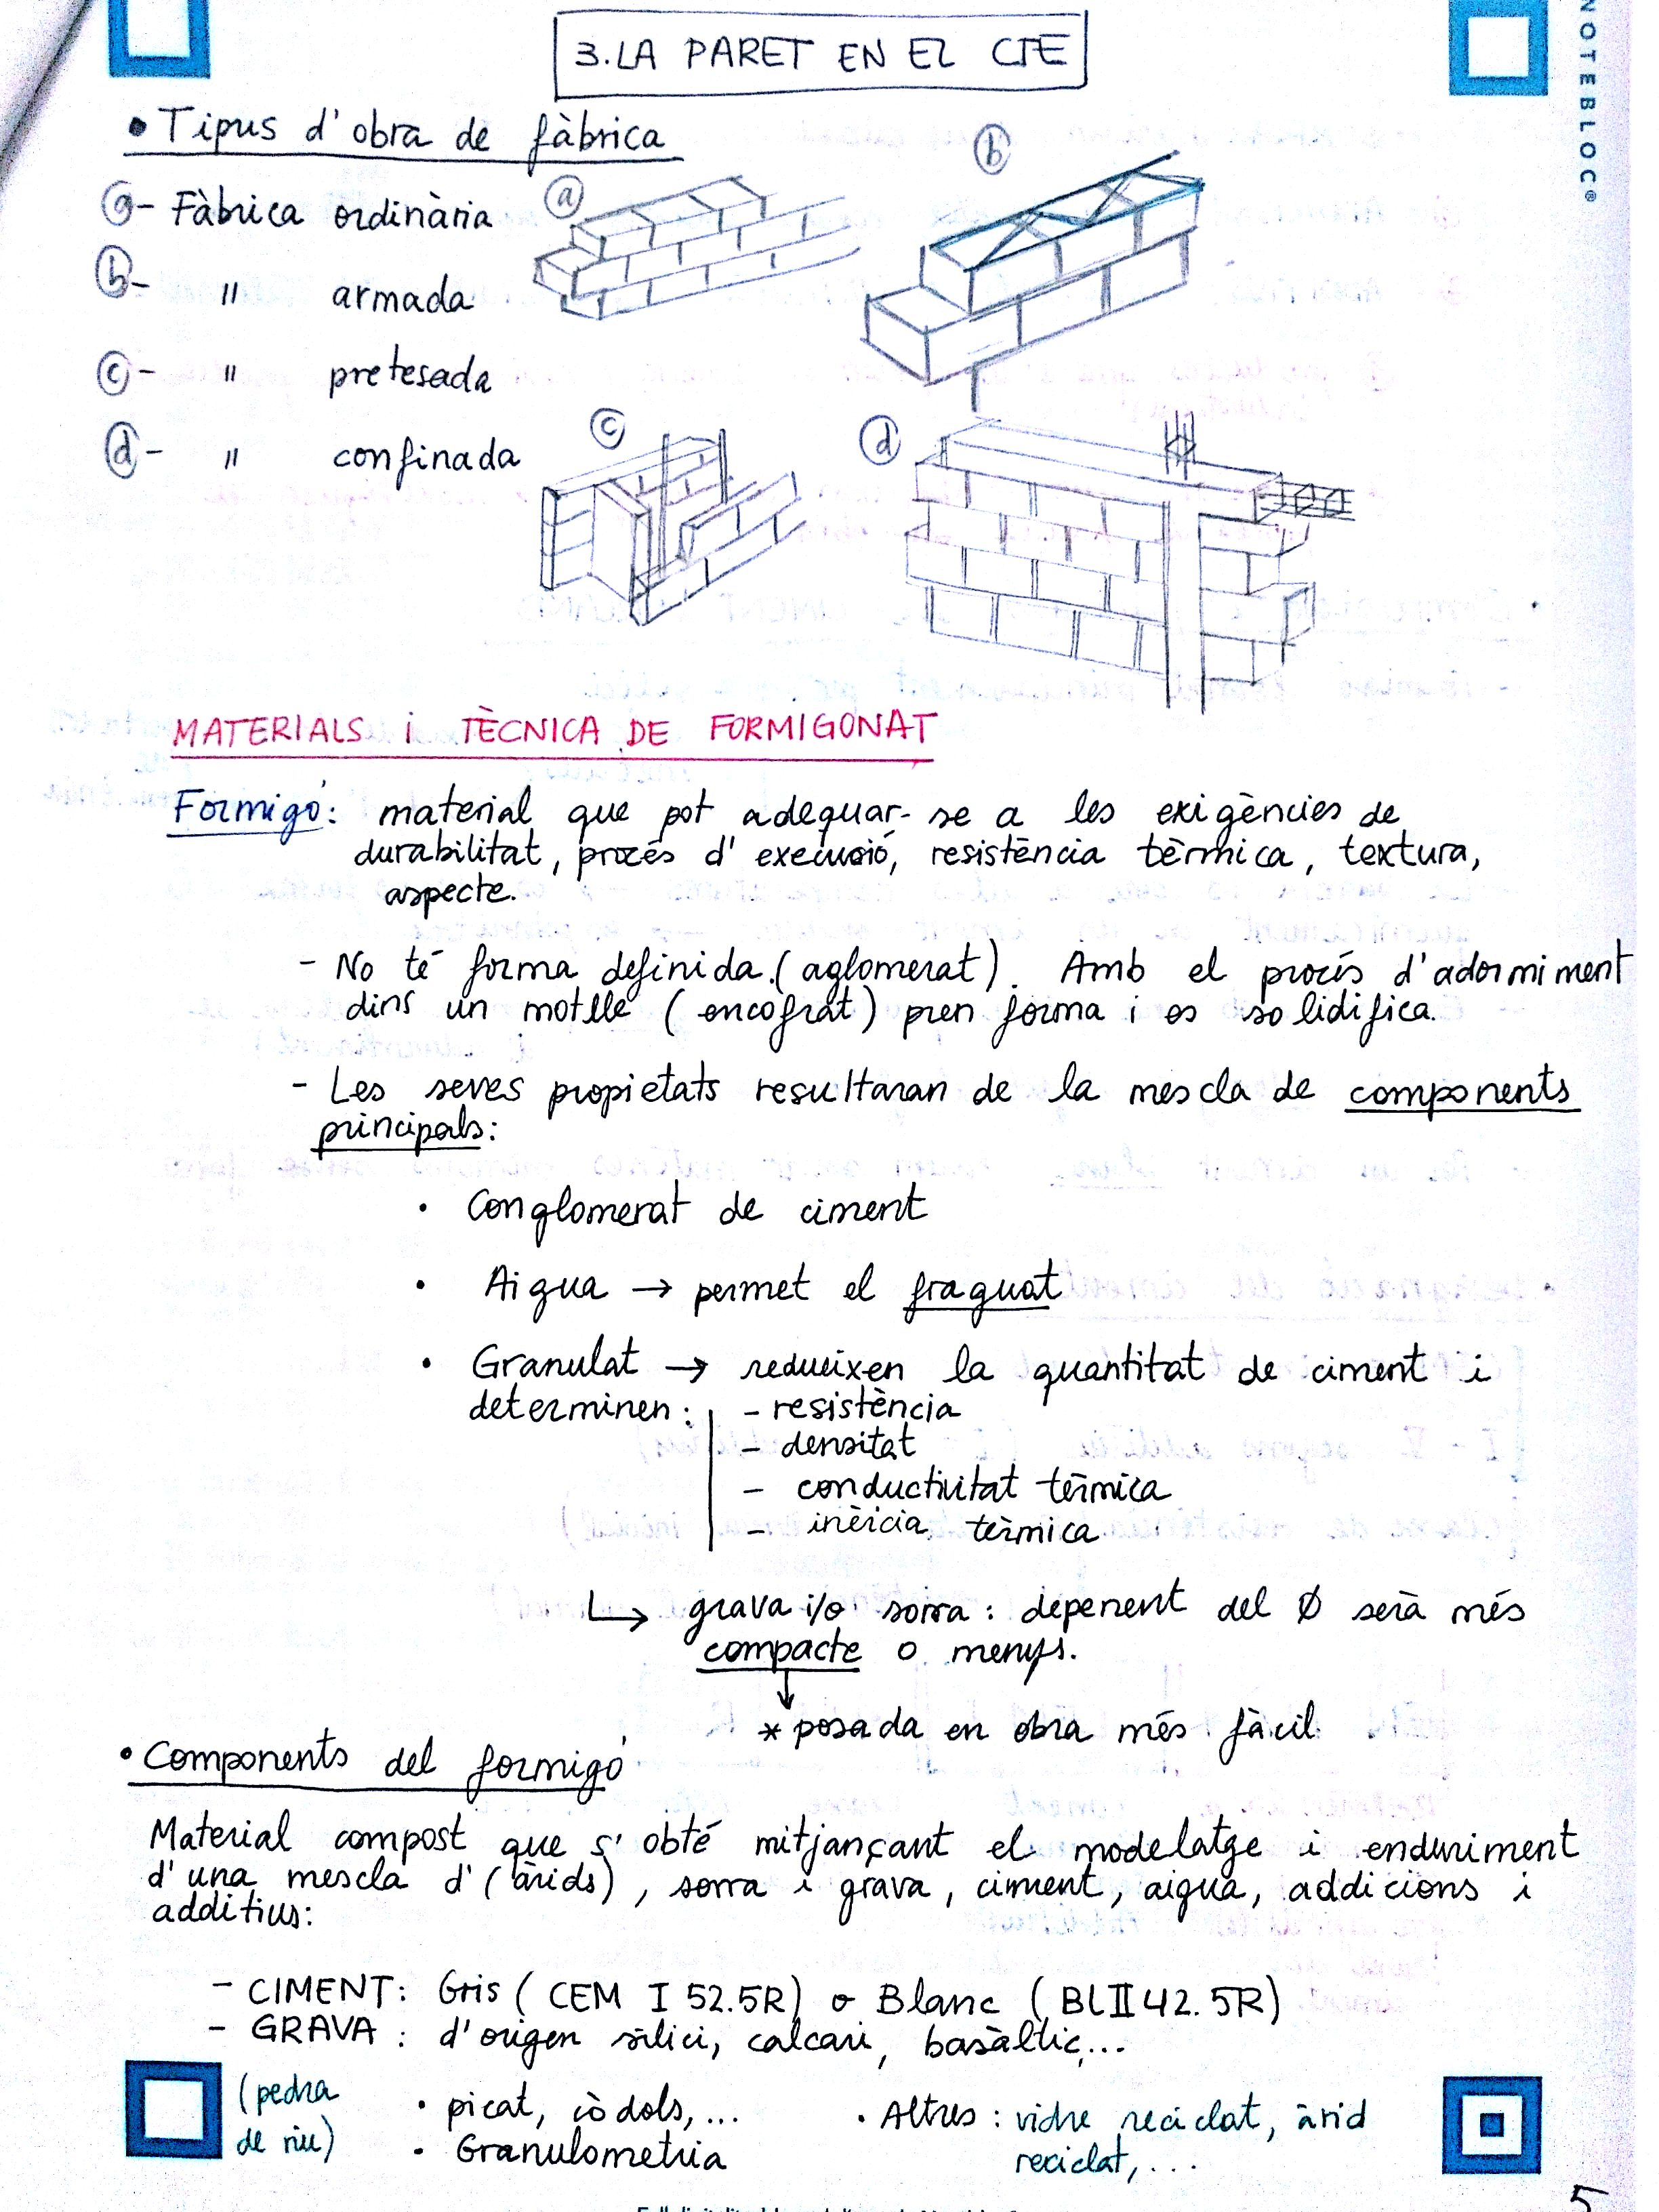 3. LA PARET EN EL CTE
NOTEBLOC®
• Tipus d'obra de fàbrica
a - Fàbrica ordinària
b - " armada
c - " pretesada
d - " confinada
a
b
c
d
MATERIALS i TÈCNICA DE FORMIGONAT
Formigó: material que pot adequar-se a les exigències de
durabilitat, procés d'execusió, resistència tèrmica, textura,
aspecte.
- No té forma definida. (aglomerat). Amb el procés d'adormiment
dins un motlle (encofrat) pren forma i es solidifica.
- Les seves propietats resultaran de la mescla de components
principals:
• Conglomerat de ciment
• Aigua → permet el fraguat
• Granulat → redueixen la quantitat de ciment i
determinen: - resistència
- densitat
- conductivitat tèrmica
- inèrcia tèrmica
↳ grava i/o sorra: depenent del Ø serà més
compacte o menys.
↓
* posada en obra més fàcil
• Components del formigó
Material compost que s'obté mitjançant el modelatge i enduriment
d'una mescla d'(àrids), sorra i grava, ciment, aigua, addicions i
additius:
- CIMENT: Gris (CEM I 52.5R) o Blanc (BLII42.5R)
- GRAVA: d'origen sílici, calcari, basàltic,...
(pedra
de riu)
• picat, còdols,...
• Granulometria
• Altres: vidre reciclat, àrid
reciclat,...
5